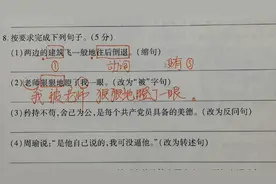 8.按要求完成下列句子。(5分)
(1)两边的建筑飞一般地往后倒退。(缩句)
① 动词 没有②
(2)老师狠狠地瞪了我一眼。(改为"被"字句)
我被老师狠狠地瞪了一眼。
(3)矜持不苟,舍己为公,是每个共产党员具备的美德。(改为反问句)
(4)周瑜说:"是他自己说的,我可没逼他。"(改为转述句)